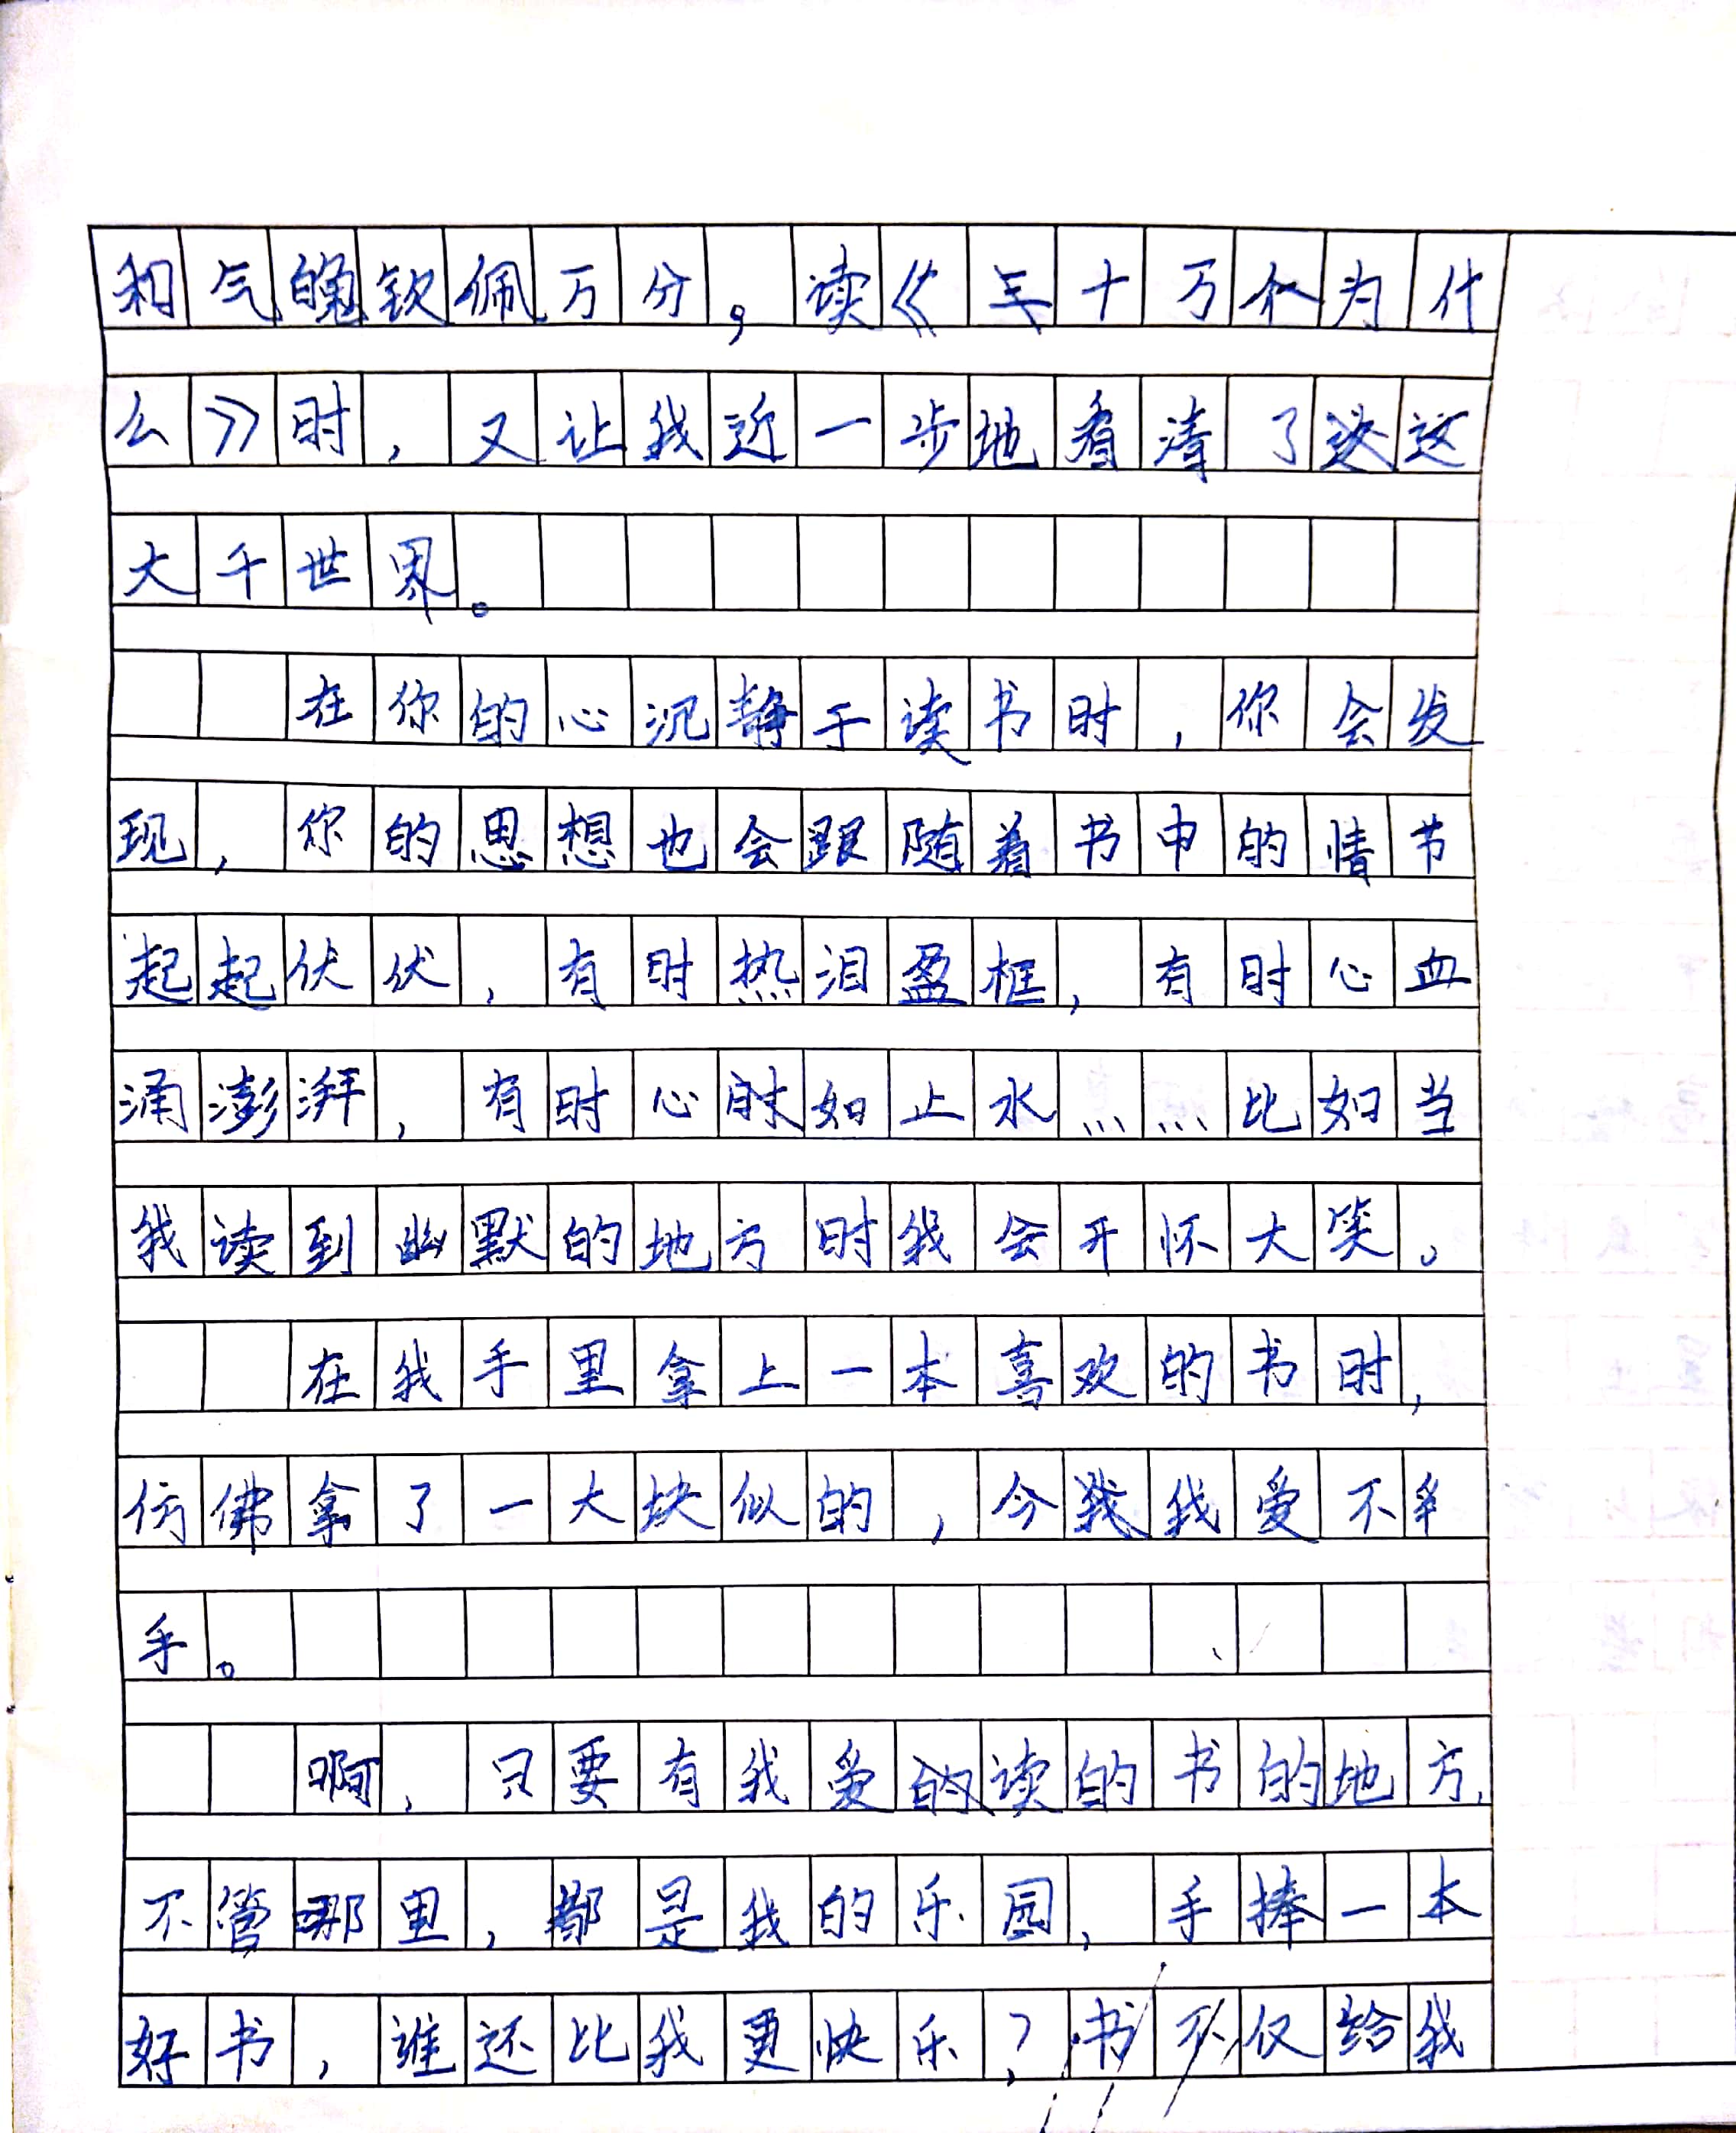 和气的钦佩万分，读《十万个为什
么》时，又让我近一步地看清了这
大千世界。
在你的心沉静于读书时，你会发
现，你的思想也会跟随着书中的情节
起起伏伏，有时热泪盈框，有时心血
涌澎湃，有时心如止水……比如当
我读到幽默的地方时我会开怀大笑。
在我手里拿上一本喜欢的书时，
仿佛拿了一大块似的，令我爱不
手。
啊，只要有我爱读的书的地方，
不管哪里，都是我的乐园，手捧一本
好书，谁还比我更快乐？书不仅给我